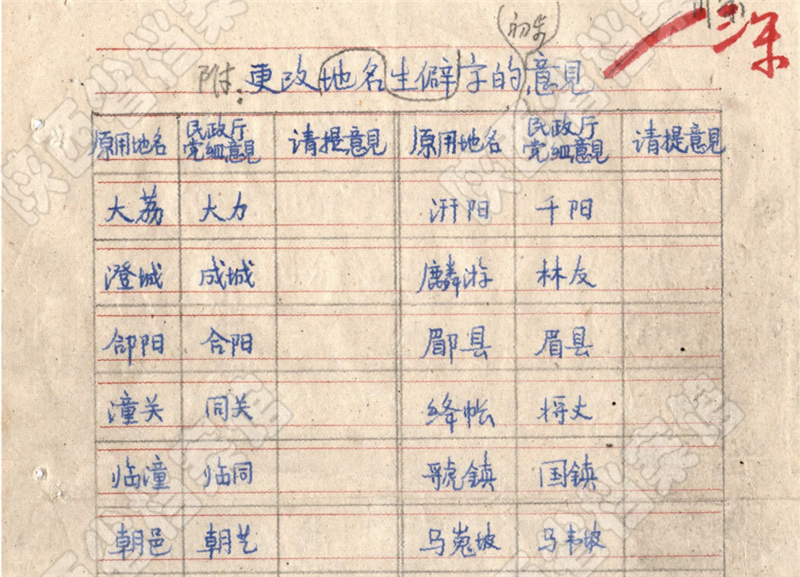 初步
附:更改地名生僻字的意見
原用地名 民政厅党组意見 请提意見 原用地名 民政厅党组意見 请提意見
大荔 大力 汧阳 千阳
澄城 成城 麟游 林友
郃阳 合阳 郿县 眉县
潼关 同关 绛帐 将丈
临潼 临同 虢镇 国镇
朝邑 朝艺 马嵬坡 马韦坡
陕西省档案馆